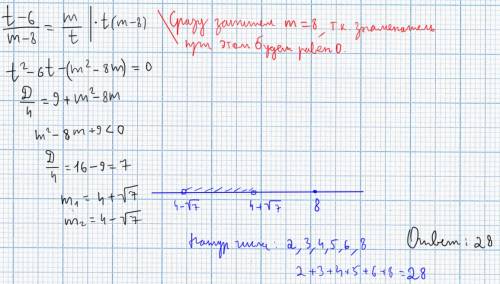 t-6/m-8 = m/t | · t(m-8)
Сразу запишем m=8, т.к. знаменатель
при этом будет равен 0.
t²-6t-(m²-8m)=0
D/4 = 9+m²-8m
m²-8m+9<0
D/4 = 16-9=7
m₁ = 4+√7
m₂ = 4-√7
4-√7 4+√7 8
Натур числа: 2, 3, 4, 5, 6, 8
2+3+4+5+6+8=28
Ответ: 28